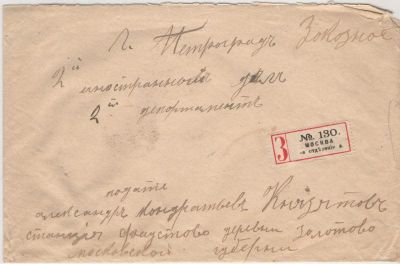 Г. Петроградъ Заказное
2й иностранныхъ дѣлъ
2й департаментъ
З № 130.
МОСКВА
податѣ
Александръ Кондратьевъ
станція Фаустово деревни Золотово
московской губерни